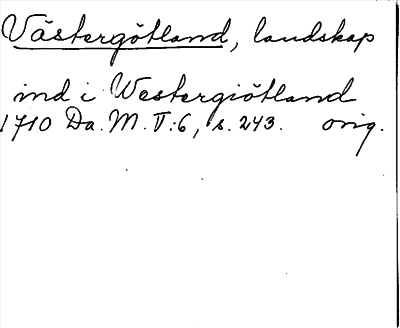 Västergötland, landskap
ind i Westergiötland
1710 Da. M. V:6, s. 243. orig.